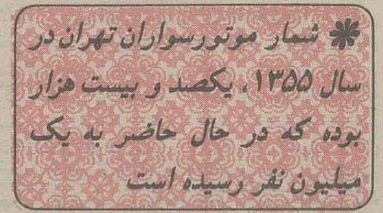 شمار موتورسواران تهران در
سال ۱۳۵۵، یکصد و بیست هزار
بوده که در حال حاضر به یک
میلیون نفر رسیده است